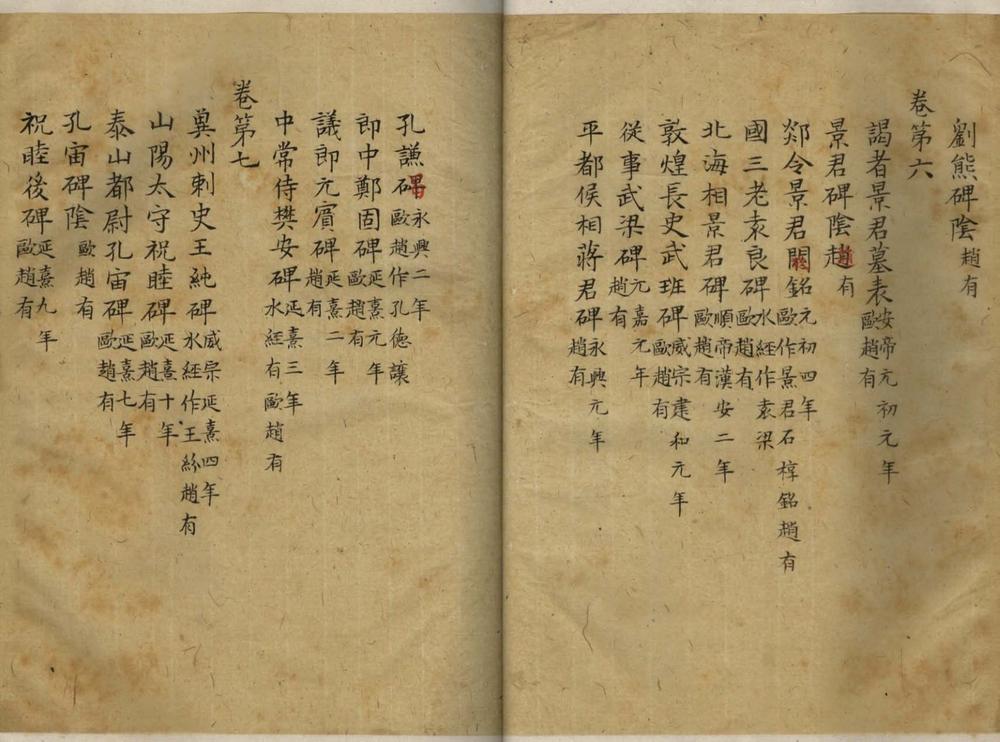 劉熊碑陰趙有
卷第六
謁者景君墓表安帝元初元年歐趙有
景君碑陰趙有
郯令景君闕銘元初四年歐作景君石椁銘趙有
國三老袁良碑水經作袁梁歐趙有
北海相景君碑順帝漢安二年歐趙有
敦煌長史武班碑威宗建和元年歐趙有
從事武梁碑元嘉元年趙有
平都侯相蔣君碑永興元年趙有
孔謙碣永興二年歐趙作孔德讓
郎中鄭固碑延熹元年歐趙有
議郎元賓碑延熹二年趙有
中常侍樊安碑延熹三年水經有歐趙有
卷第七
兾州刺史王純碑威宗延熹四年水經作王紛趙有
山陽太守祝睦碑延熹十年歐趙有
泰山都尉孔宙碑延熹七年歐趙有
孔宙碑陰歐趙有
祝睦後碑延熹九年歐趙有